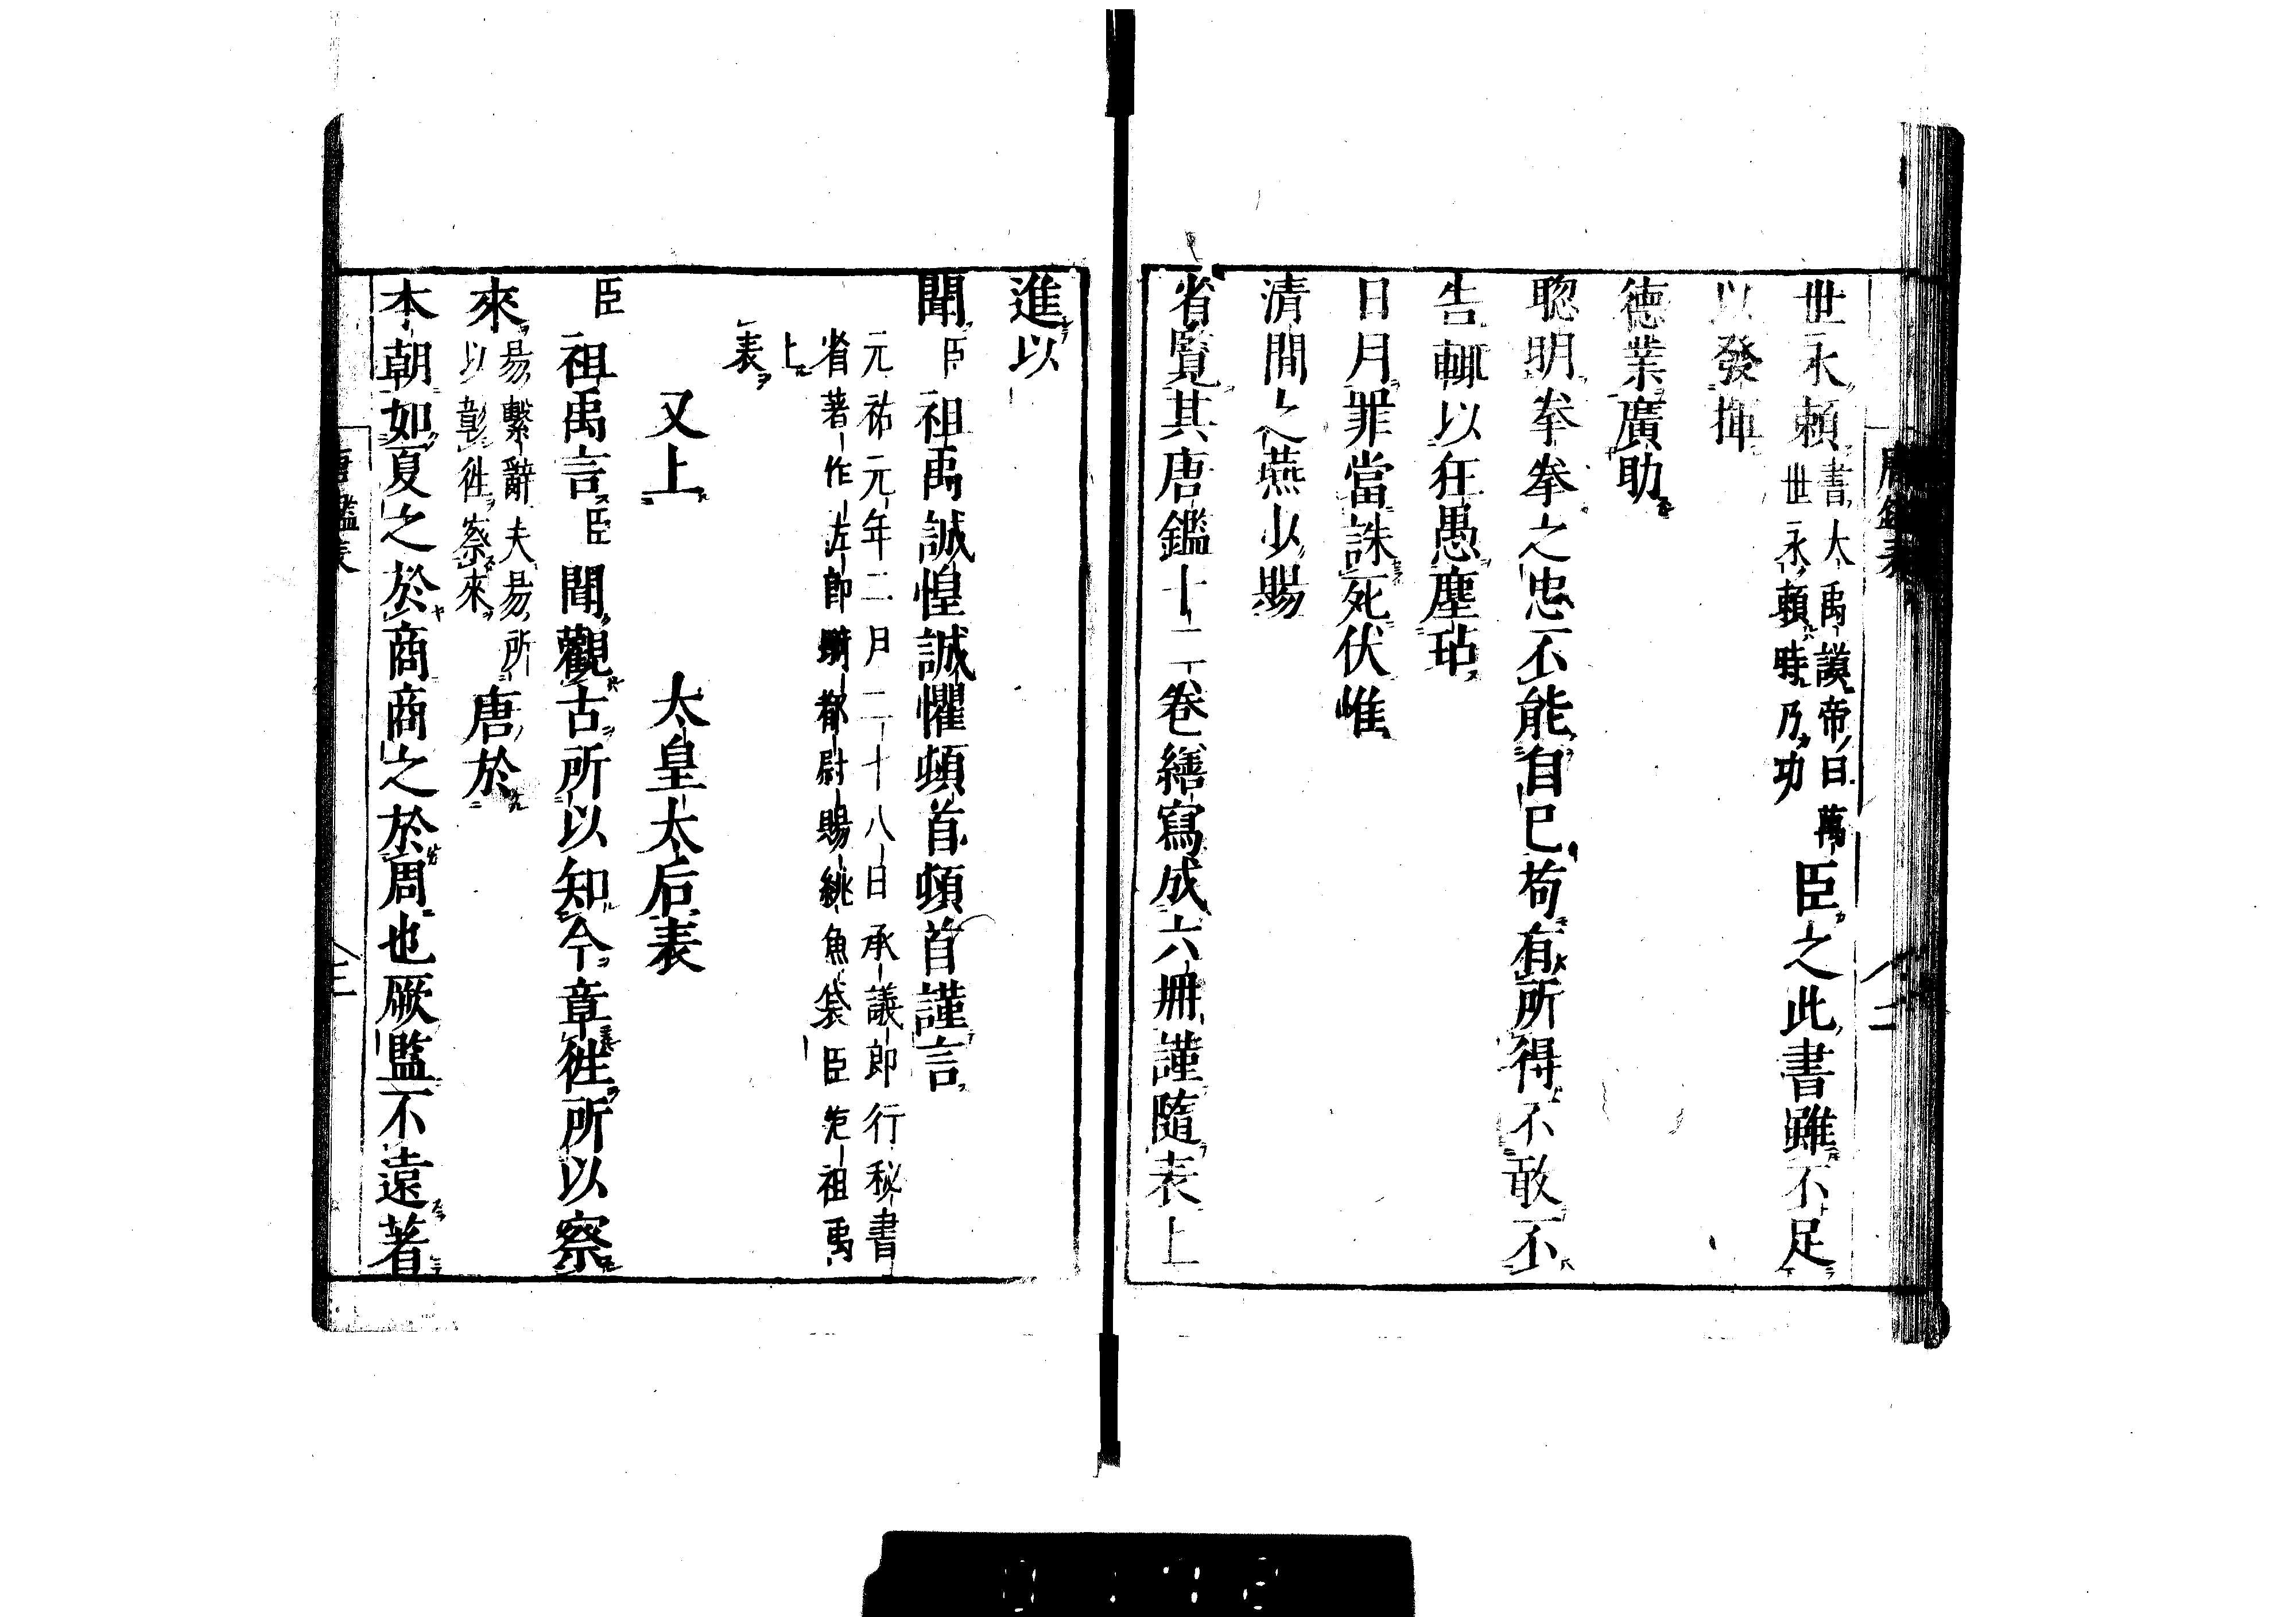 世永賴書大禹謨帝曰萬世永賴時乃功臣之此書雖不足
以發揮
德業廣助
聦明拳拳之忠不能自已苟有所得不敢不
告輒以狂愚塵玷
日月罪當誅死伏惟
清閒之燕少賜
省覽其唐鑑十二卷繕寫成六冊謹隨表上
進以
聞臣祖禹誠惶誠懼頓首頓首謹言
元祐元年二月二十八日承議郎行秘書
省著作佐郎騎都尉賜緋魚袋臣范祖禹
上
表
又上 太皇太后表
臣祖禹言臣聞觀古所以知今章徃所以察
來易繫辭夫易所以彰徃察來唐於
本朝如夏之於商商之於周也厥監不遠著
唐鑑表 三